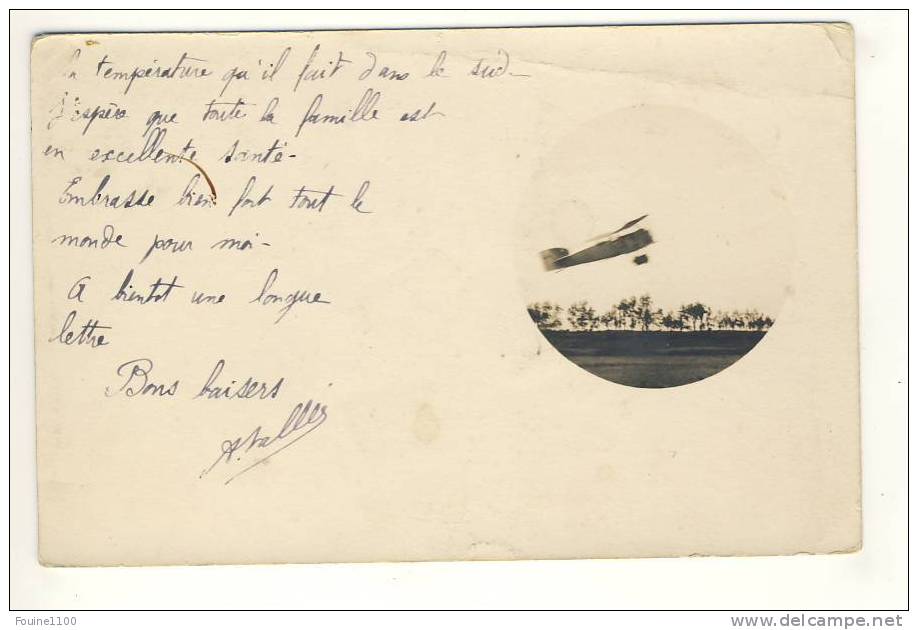 la température qu'il fait dans le sud -
J'espère que toute la famille est
en excellente santé -
Embrasse bien fort tout le
monde pour moi -
A bientôt une longue
lettre
Bons baisers
Founine1100
www.delcampe.net